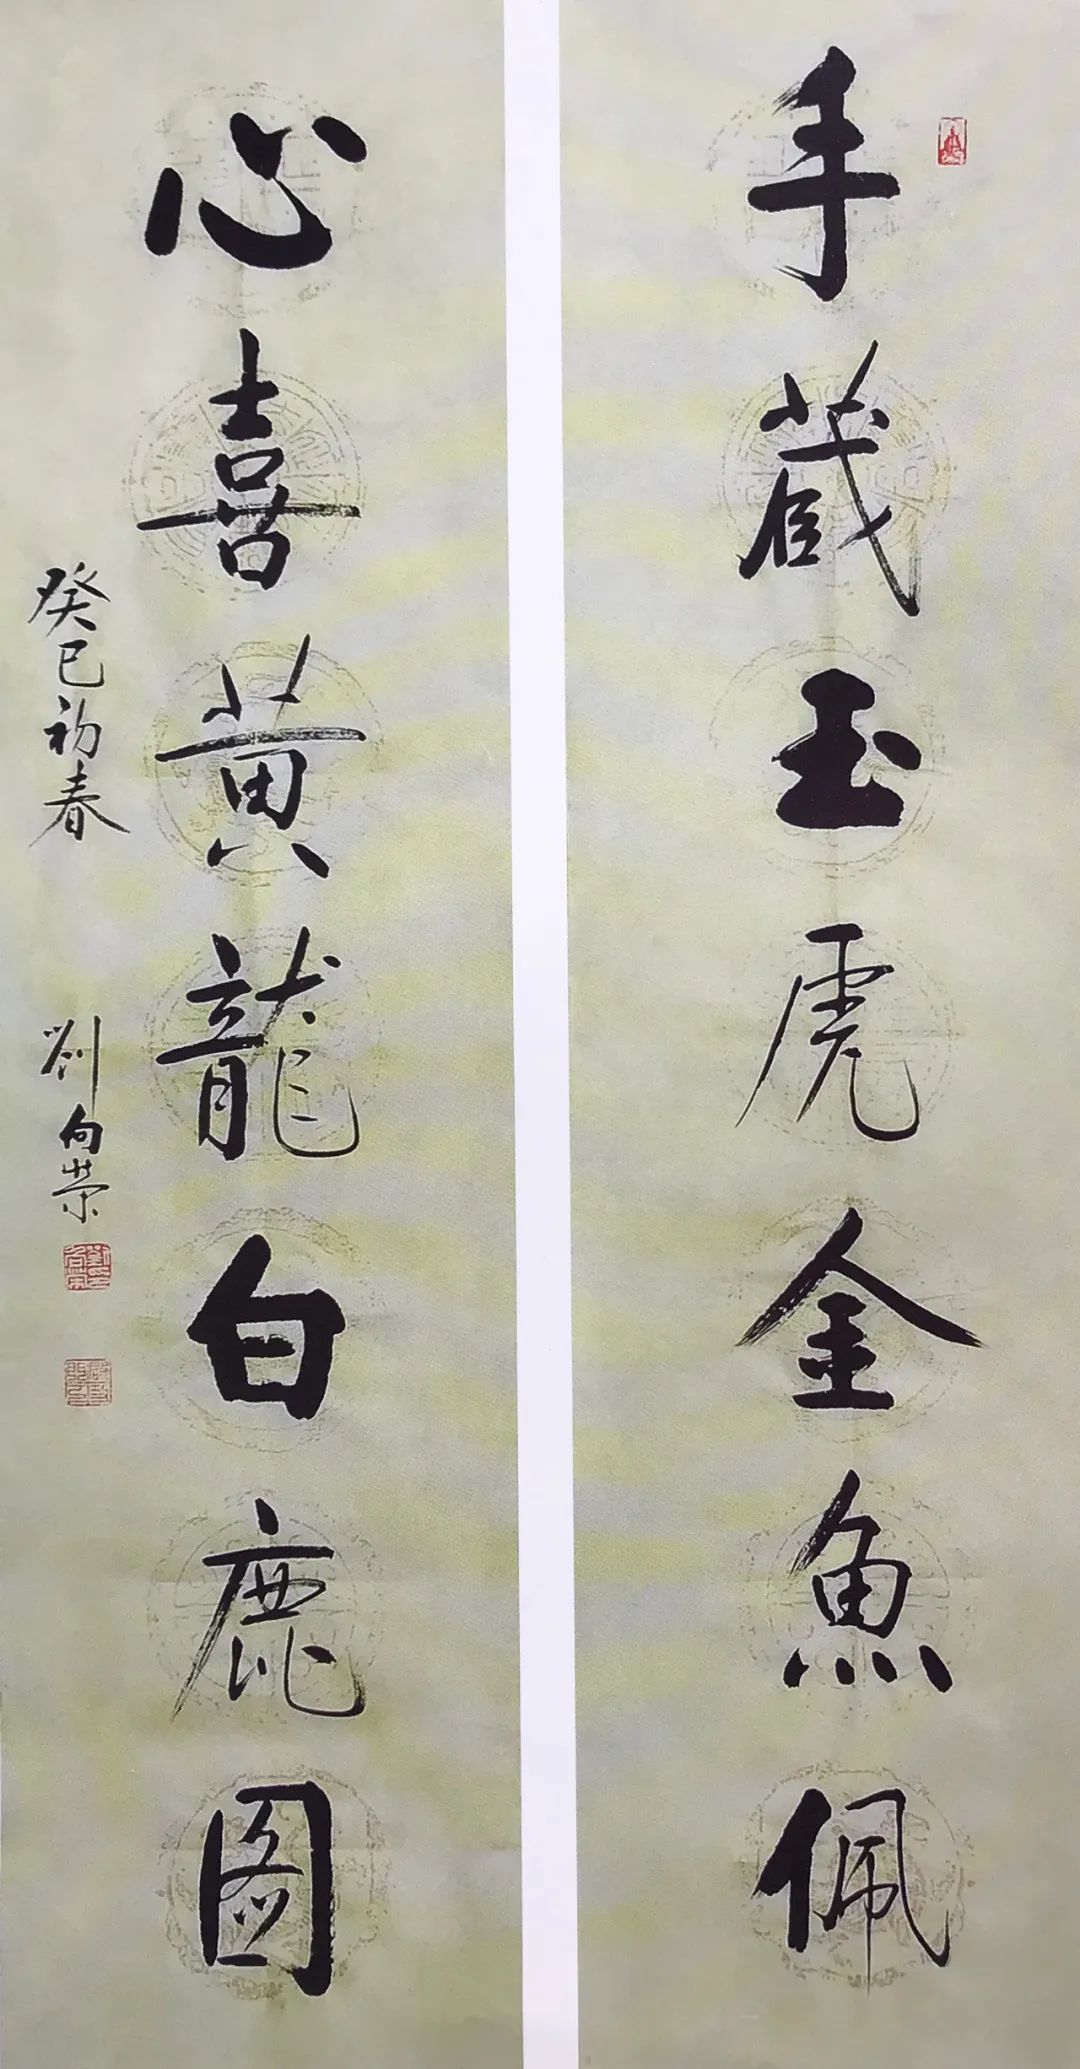 手藏玉虎金魚佩
心喜黄龍白鹿图
癸巳初春
劉向荣